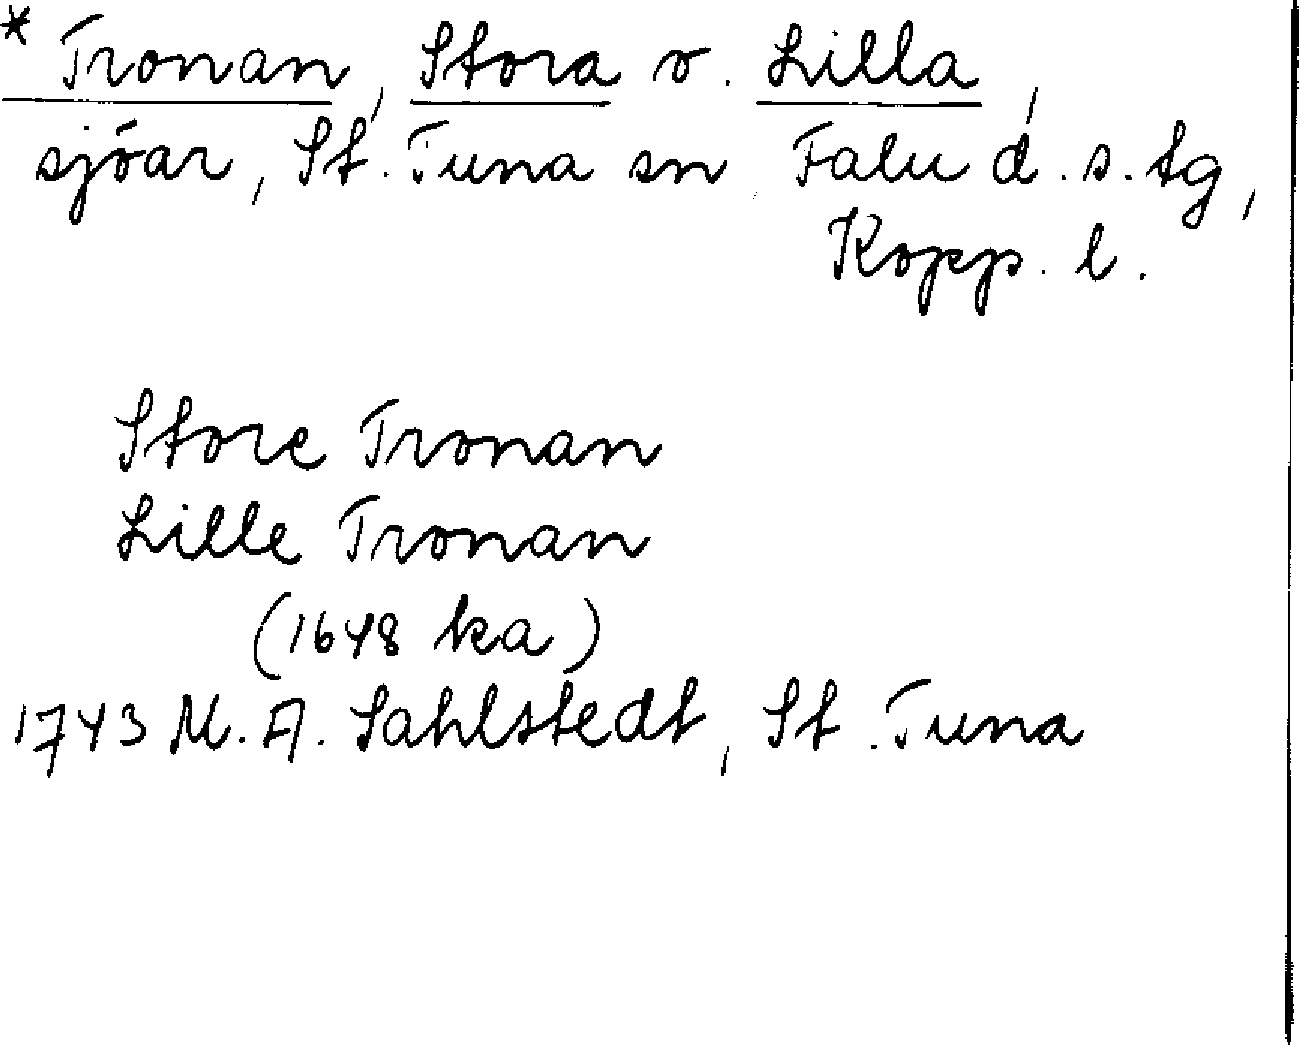 * Tronan, Stora o. Lilla,
sjöar, St. Tuna sn, Falu d. s. tg,
Kopp. l.
Store Tronan
Lille Tronan
(1648 ka)
1743 M. A. Sahlstedt, St. Tuna